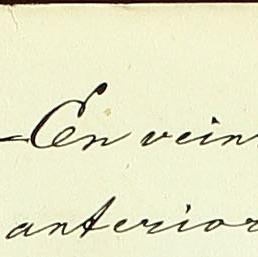 En vein
anterior